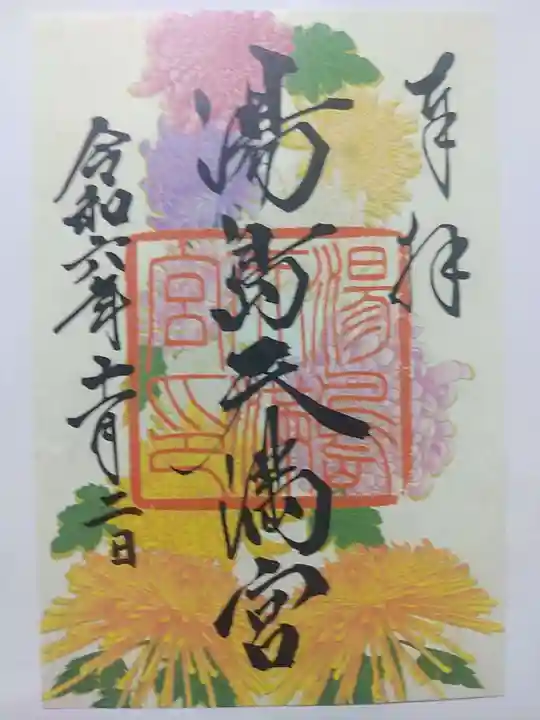 奉拝
湯島天満宮
令和六年十一月二日
湯島
天満
宮印